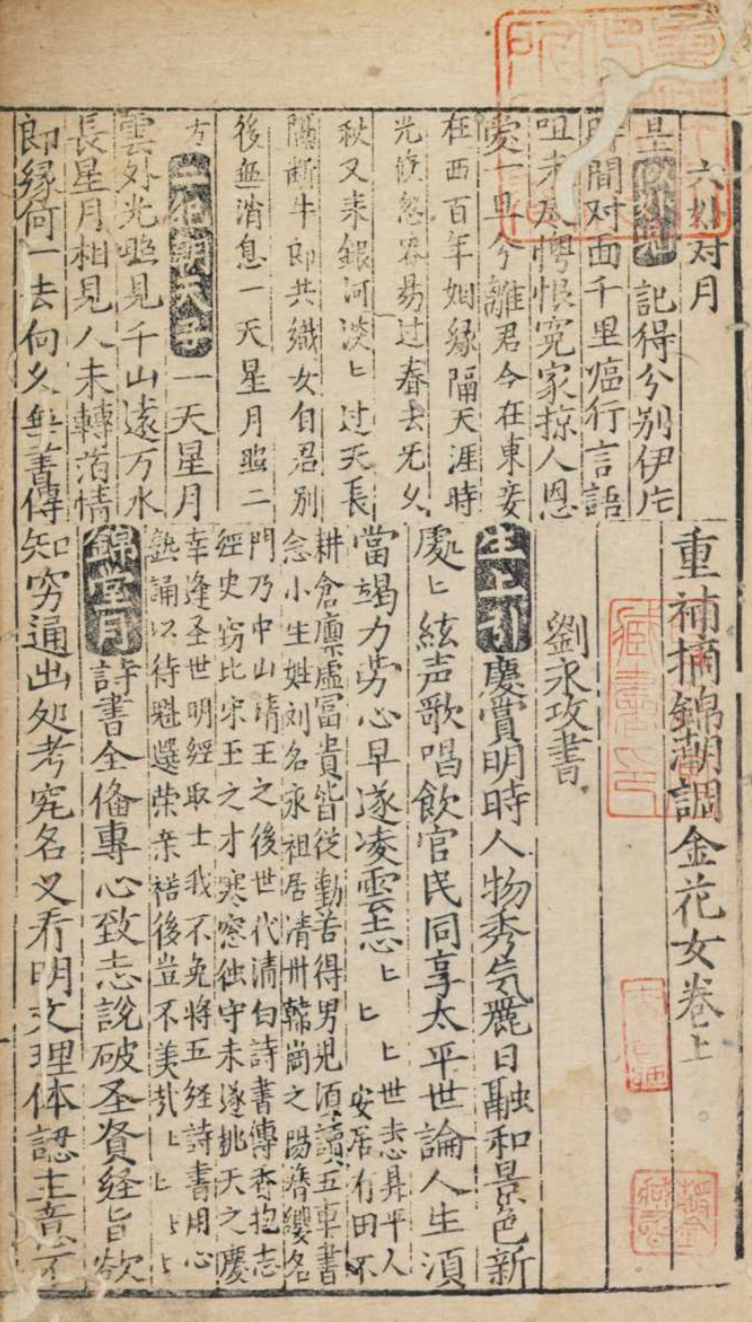 六娘对月
記得分别伊庄
時間对面千里㾾行言語
咀未尽愕恨冤家掠人恩
愛一旦分離君今在東妾
在西百年姻緣隔天涯時
光倏忽容易过春去旡久
秋又来銀河淡匕过天長
隔断牛郎共織女自君別
後無消息一天星月照二
方 二犯朝天子 一天星月
雲外光照見千山遠万水
長星月相見人未轉薄情
郎緣何一去何久無書傳
重補摘錦潮調金花女卷上
劉永攻書
生上引 慶賞明時人物秀气麗日融和景色新
處匕絃声歌唱飲官民同享太平世論人生湏
當竭力劳心早遂凌雲志匕匕匕世恙昇平人
安居有田不
耕倉廪虛冨貴皆從勤苦得男児湏讀五車書
念小生姓刘名永祖居清卅韓崗之陽簪纓名
門乃中山靖王之後世代清白詩書傳香抱志
經史窃比宋玉之才寒窓独守未遂桃夭之慶
幸逢圣世明經取士我不免將五経詩書用心
熟誦以待魁選荣亲裕後豈不美哉匕匕匕匕
錦堂月 詩書全俻專心致志說破圣賢経旨欲
知穷通出処考究名义看明文理体認主意不